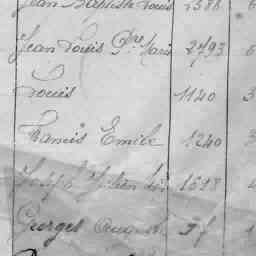 Jean Baptiste Louis 2588 6
Jean Louis Pre Marie 2793 6
Louis 1140 3
Francis Emile 1240 3
Joseph 1518
Georges August 1